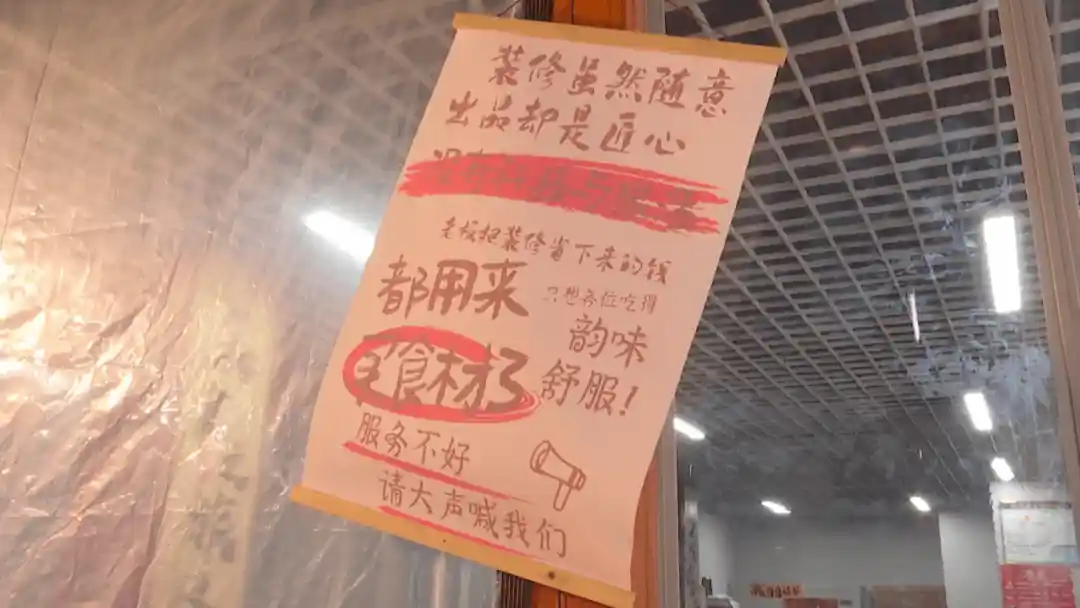 装修虽然随意
出品却是匠心
没有
老板把装修省下来的钱
都用来
只想各位吃得
韵味
买食材了
舒服!
服务不好
请大声喊我们